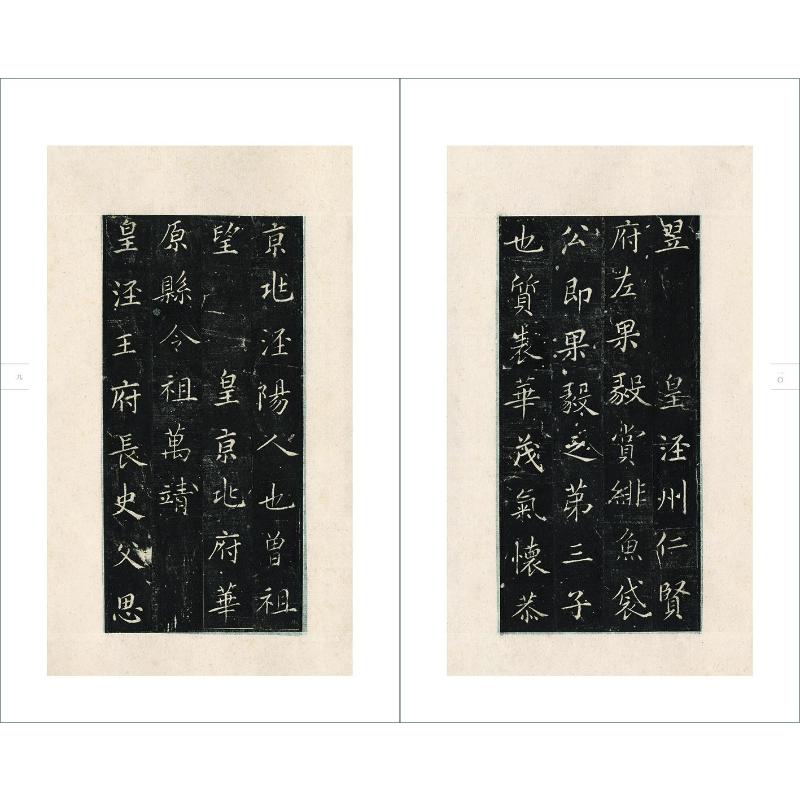 京兆涇陽人也曾祖
望 皇京兆府華
原縣令祖萬靖
皇涇王府長史父思
九
翌 皇涇州仁賢
府左果毅賞緋魚袋
公即果毅之第三子
也質製華茂氣懷恭
一〇